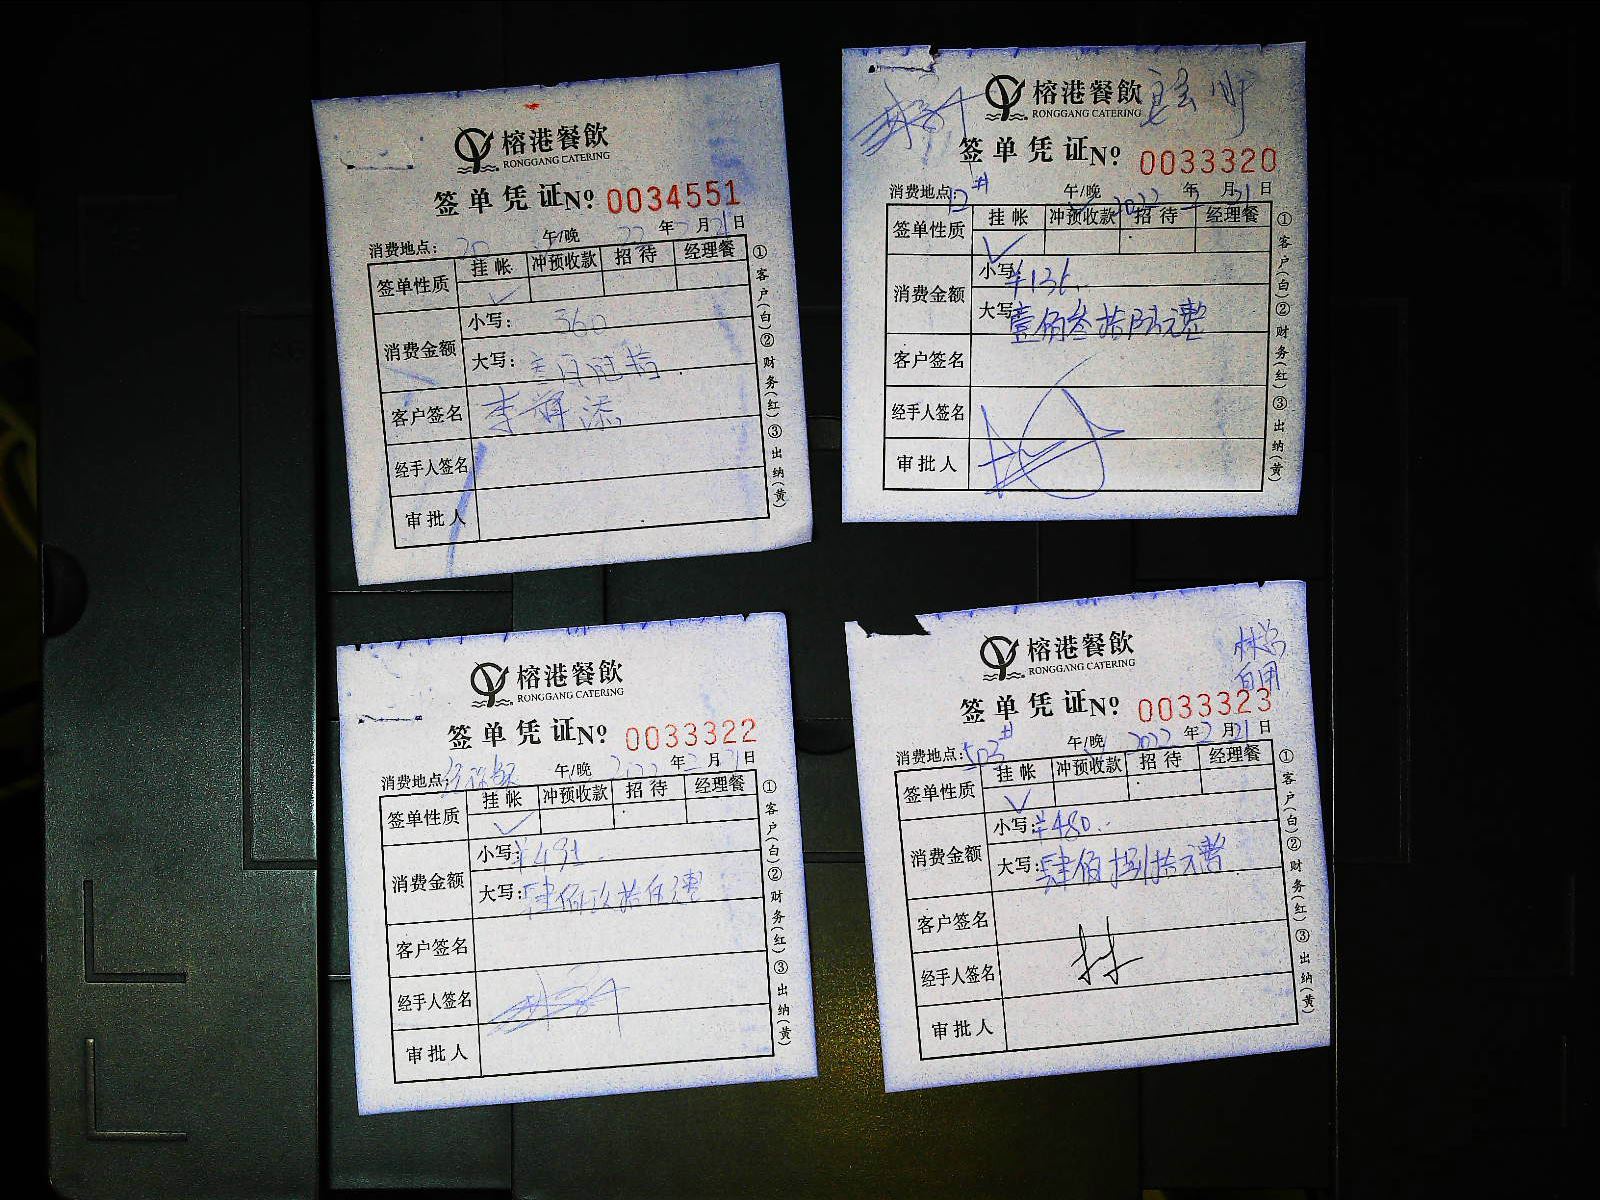 榕港餐飲
RONGGANG CATERING
签单凭证 Nº 0034551
消费地点: 午/晚 22 年 月 21 日
签单性质 挂帐 冲预收款 招待 经理餐
✓
消费金额 小写: 360
大写: 叁百陆拾
客户签名
经手人签名
审批人
①客户(白)②财务(红)③出纳(黄)
榕港餐飲
RONGGANG CATERING
签单凭证 Nº 0033320
消费地点: 12# 午/晚 2022 年 月 21 日
签单性质 挂帐 冲预收款 招待 经理餐
✓
消费金额 小写: ¥136.
大写: 壹佰叁拾陆元整
客户签名
经手人签名
审批人
①客户(白)②财务(红)③出纳(黄)
榕港餐飲
RONGGANG CATERING
签单凭证 Nº 0033322
消费地点: 午/晚 2022 年 2 月 21 日
签单性质 挂帐 冲预收款 招待 经理餐
✓
消费金额 小写:
大写: 肆佰玖拾元整
客户签名
经手人签名
审批人
①客户(白)②财务(红)③出纳(黄)
榕港餐飲
RONGGANG CATERING
林总
自用
签单凭证 Nº 0033323
消费地点: 503# 午/晚 2022 年 2 月 21 日
签单性质 挂帐 冲预收款 招待 经理餐
✓
消费金额 小写: ¥480.
大写: 肆佰捌拾元整
客户签名
经手人签名 林
审批人
①客户(白)②财务(红)③出纳(黄)